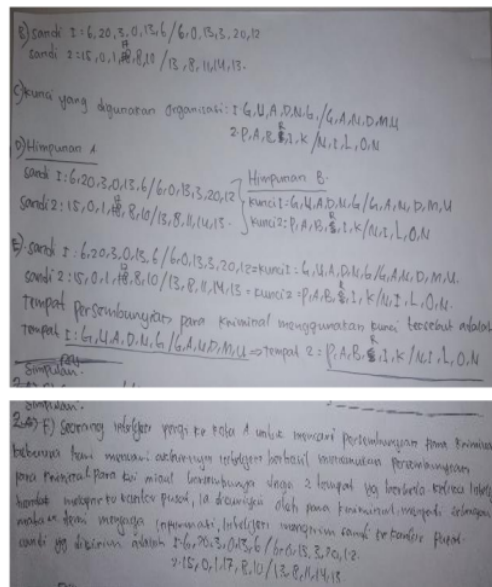 B) sandi I : 6, 20, 3, 0, 13, 6 / 6, 0, 13, 3, 20, 12
sandi 2 : 15, 0, 1, 17, 8, 10 / 13, 8, 11, 14, 13.
C) kunci yang digunakan organisasi : I G, U, A, D, N, G, / G, A, N, D, M, U
2. P, A, B, R, I, K / N, I, L, O, N
D) Himpunan A
sandi I : 6, 20, 3, 0, 13, 6 / 6, 0, 13, 3, 20, 12
sandi 2 : 15, 0, 1, 17, 8, 10 / 13, 8, 11, 14, 13.
Himpunan B.
kunci I : G, U, A, D, N, G / G, A, N, D, M, U
kunci 2 : P, A, B, R, I, K / N, I, L, O, N
E) sandi I : 6, 20, 3, 0, 13, 6 / 6, 0, 13, 3, 20, 12 = kunci I : G, U, A, D, N, G / G, A, N, D, M, U.
sandi 2 : 15, 0, 1, 17, 8, 10 / 13, 8, 11, 14, 13 = kunci 2 = P, A, B, R, I, K / N, I, L, O, N.
tempat persembunyian para kriminal menggunakan kunci tersebut adalah
tempat I : G, U, A, D, N, G / G, A, N, D, M, U => tempat 2 : P, A, B, R, I, K / N, I, L, O, N
Simpulan.
Simpulan.
F) Seorang intelijen pergi ke kota A untuk mencari persembunyian para kriminal
beberapa hari mencari akhirnya intelijen berhasil menemukan persembunyian
para kriminal para bersembunyi 2 tempat yg berbeda ketika intelijen
hendak melapor ke kantor pusat, ia dicurigai oleh para kriminal menjadi
demi menjaga informasi, intelijen mengirim sandi ke kantor pusat.
sandi yg dikirim adalah I. 6, 20, 3, 0, 13, 6 / 6, 0, 13, 3, 20, 12.
2. 15, 0, 1, 17, 8, 10 / 13, 8, 11, 14, 13